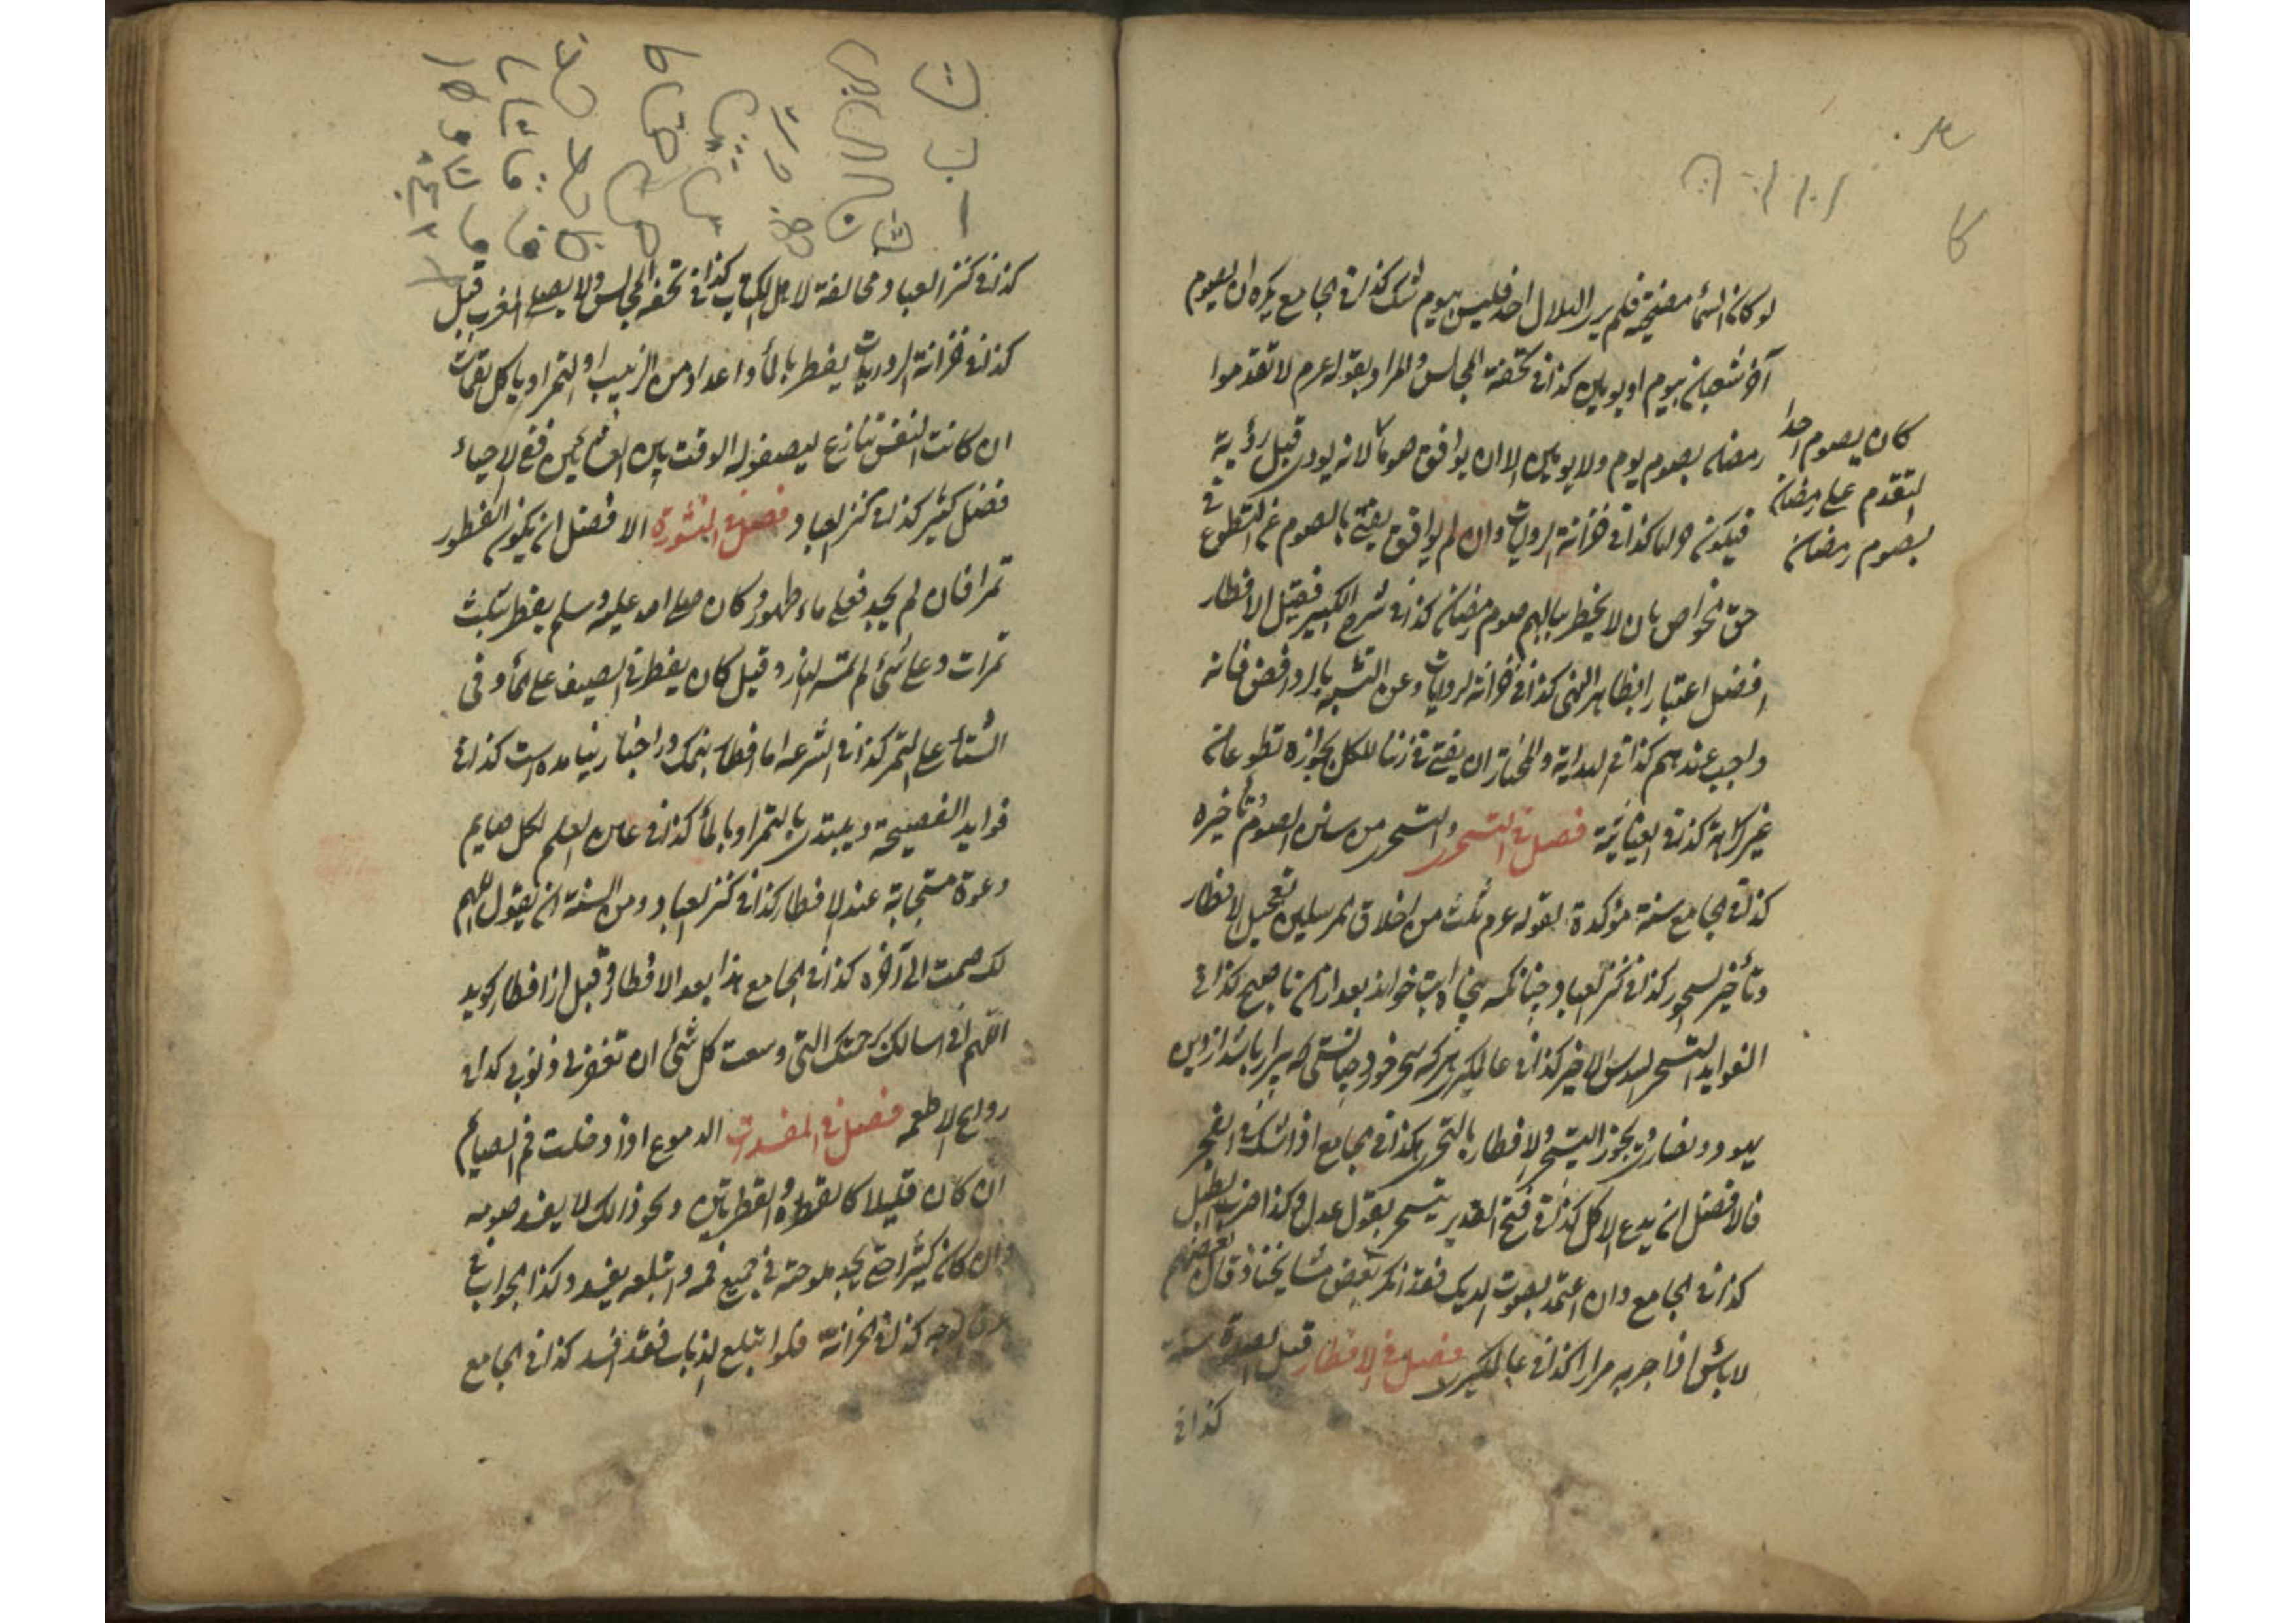 لو كان السماء مصحية فلم ير الهلال احد فليس بيوم الشك كذا فى الجامع يكره ان يصوم
آخر شعبان بيوم او يومين كذا فى تحفة المجالس والمراد بقوله عرم لا تقدموا
رمضان بصوم يوم ولا يومين الا ان يوافق صوما لانه يودى قبل رؤية
فيكون حراما كذا فى خزانة الروايات وان لم يوافق يفتى بالصوم غير التطوع فى
كان يصوم احدا
التقدم على رمضان
بصوم رمضان
حق الخواص بان لا يخطر ببالهم صوم رمضان كذا فى شرح الكبير فقيل الافطار
افضل اعتبارا بظاهر النهى كذا فى خزانة الروايات وعن التشبه بالروافض فانه
واجب عندهم كذا فى الهداية والمختار ان يفتى فى زمننا للكل بجوازه تطوعا من
غير كراهة كذا فى الغياثية فصل فى التسحر والتسحر من سنن الصوم وتأخيره
كذا فى الجامع سنة مؤكدة لقوله عرم ثلث من اخلاق المرسلين تعجيل الافطار
وتأخير السحور كذا فى كنز العباد چنانكه پنجاه ايت خواند بعد ازان تا صبح كذا فى
الفوايد التسحر السدس الاخير كذا فى عالمكيرى هر كه سحر خورد چنانستى كه بيزار باشد از دين
يهود و نصارى ويجوز التسحر والافطار بالتحرى كذا فى الجامع اذا شك فى الفجر
فالافضل ان يدع الاكل كذا فى فتح القدير يتسحر بقول عدل وكذا ضرب الطبل
كذا فى الجامع وان اعتمد بصوت الديك فقد انكر بعض مشايخنا وقال بعضهم
لا باس اذا جربه مرارا كذا فى عالمكيرى فصل فى الافطار قبل الصلوة سنة
كذا فى
كذا فى كنز العباد ومخالفة لاهل الكتاب كذا فى تحفة المجالس ولا يصلى المغرب قبل
كذا فى خزانة الروايات يفطر بالماء واعداد من الزبيب او التمر او ياكل لقمات
ان كانت النفس تنازع ليصفو له الوقت بين العشائين ففى الاحياء
فضل كثير كذا فى كنز العباد الافضل ان يكون الفطور
تمرا فان لم يجد فعلى ماء طهور وكان صلى الله عليه وسلم يفطر بثلث
تمرات وعلى شئ لم تمسه النار وقيل كان يفطر فى الصيف على الماء وفى
الشتاء على التمر كذا فى الشرعه اما افطار بنمك در اخبار نيامده است كذا فى
فوايد الفصيحة ويبتدى بالتمر او بالماء كذا فى عين العلم لكل صايم
دعوة مستجابة عند الافطار كذا فى كنز العباد ومن السنة ان يقول اللهم
لك صمت الى آخره كذا فى الجامع هذا بعد الافطار وقبل از افطار كويد
اللهم انى اسالك برحمتك التى وسعت كل شئ ان تغفر لى ذنوبى كذا فى
الاطعمه فصل فى المفسدات الدموع اذا دخلت فم الصيام
ان كان قليلا كالقطرة والقطرتين ونحو ذالك لا يفسد صومه
وان كان كثيرا حتى يجد ملوحته فى جميع فمه وابتلعه يفسد وكذا الجواب فى
عرق الوجه كذا فى الخزانة فلو ابتلع الذباب فقد افسد كذا فى الجامع